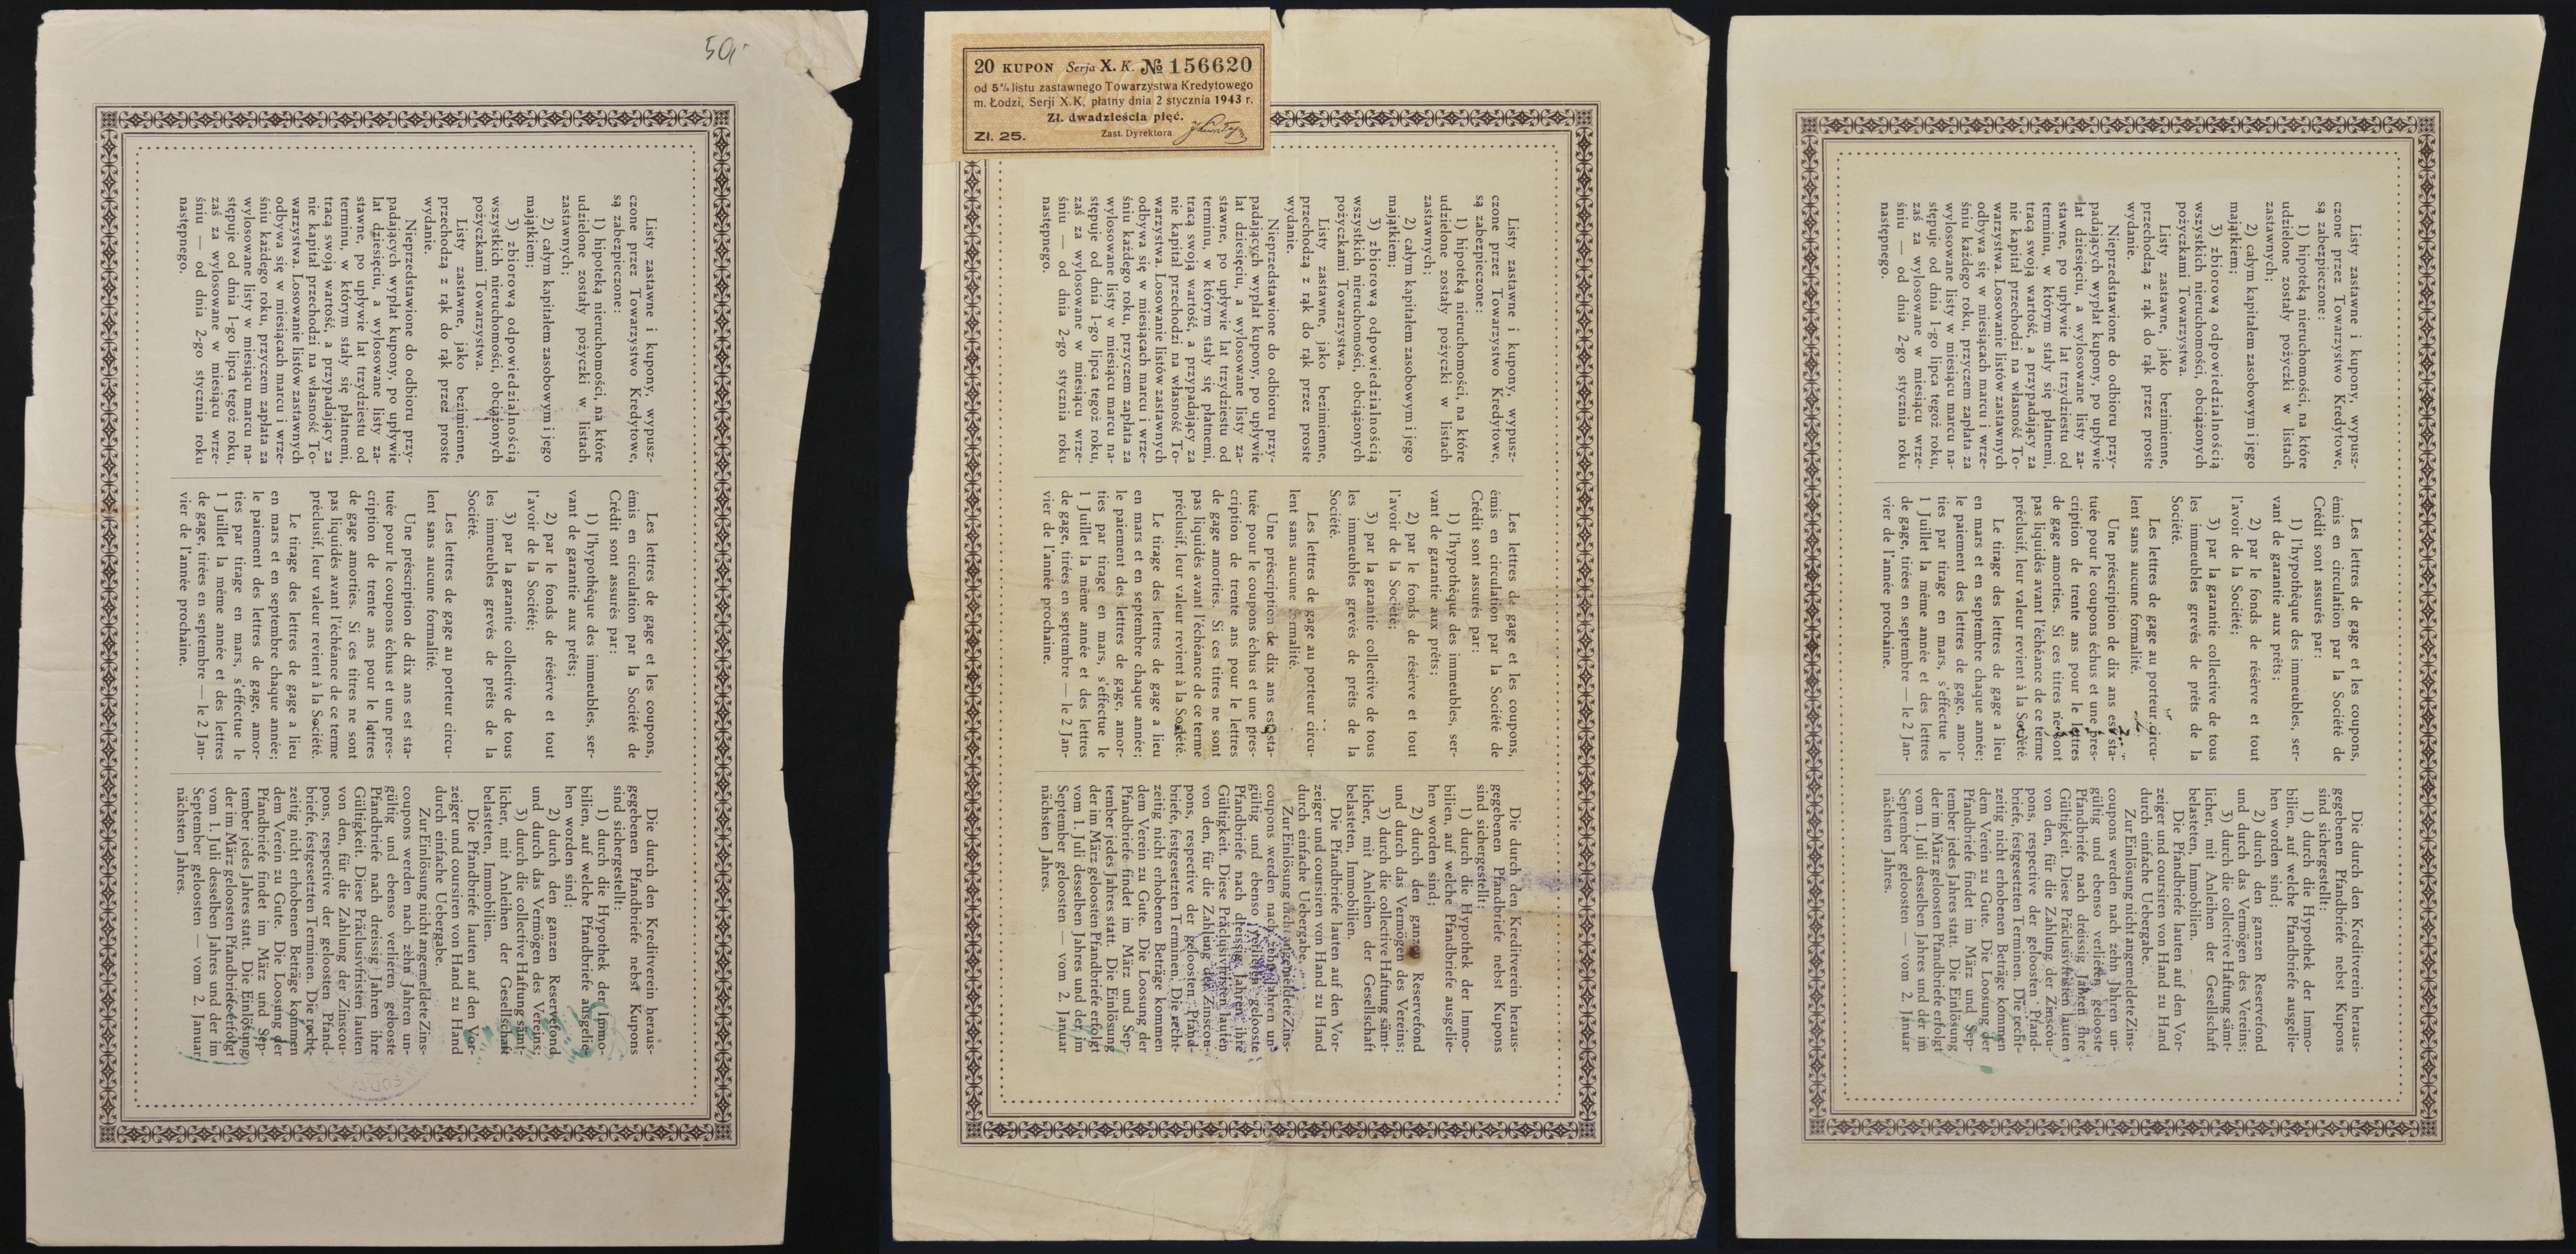 50,-
Listy zastawne i kupony, wypusz-
czone przez Towarzystwo Kredytowe,
są zabezpieczone:
1) hipoteką nieruchomości, na które
udzielone zostały pożyczki w listach
zastawnych;
2) całym kapitałem zasobowym i jego
majątkiem;
3) zbiorową odpowiedzialnością
wszystkich nieruchomości, obciążonych
pożyczkami Towarzystwa.
Listy zastawne, jako bezimienne,
przechodzą z rąk do rąk przez proste
wydanie.
Nieprzedstawione do odbioru przy-
padających wypłat kupony, po upływie
lat dziesięciu, a wylosowane listy za-
stawne, po upływie lat trzydziestu od
terminu, w którym stały się płatnemi,
tracą swoją wartość, a przypadający za
nie kapitał przechodzi na własność To-
warzystwa. Losowanie listów zastawnych
odbywa się w miesiącach marcu i wrze-
śniu każdego roku, przyczem zapłata za
wylosowane listy w miesiącu marcu na-
stępuje od dnia 1-go lipca tegoż roku,
zaś za wylosowane w miesiącu wrze-
śniu — od dnia 2-go stycznia roku
następnego.
Les lettres de gage et les coupons,
émis en circulation par la Société de
Crédit sont assurés par:
1) l'hypothèque des immeubles, ser-
vant de garantie aux prêts;
2) par le fonds de résèrve et tout
l'avoir de la Société;
3) par la garantie collective de tous
les immeubles grevés de prêts de la
Société.
Les lettres de gage au porteur circu-
lent sans aucune formalité.
Une préscription de dix ans est sta-
tuée pour le coupons échus et une pres-
cription de trente ans pour le lettres
de gage amorties. Si ces titres ne sont
pas liquidés avant l'échéance de ce terme
préclusif, leur valeur revient à la Société.
Le tirage des lettres de gage a lieu
en mars et en septembre chaque année;
le paiement des lettres de gage, amor-
ties par tirage en mars, s'effectue le
1 Juillet la même année et des lettres
de gage, tirées en septembre — le 2 Jan-
vier de l'année prochaine.
Die durch den Kreditverein heraus-
gegebenen Pfandbriefe nebst Kupons
sind sichergestellt:
1) durch die Hypothek der Immo-
bilien, auf welche Pfandbriefe ausgelie-
hen worden sind;
2) durch den ganzen Reservefond
und durch das Vermögen des Vereins;
3) durch die collective Haftung sämt-
licher, mit Anleihen der Gesellschaft
belasteten, Immobilien.
Die Pfandbriefe lauten auf den Vor-
zeiger und coursiren von Hand zu Hand
durch einfache Uebergabe.
Zur Einlösung nicht angemeldete Zins-
coupons werden nach zehn Jahren un-
gültig und ebenso verlieren gelooste
Pfandbriefe nach dreissig Jahren ihre
Gültigkeit. Diese Präclusivfristen lauten
von den, für die Zahlung der Zinscou-
pons, respective der geloosten Pfand-
briefe, festgesetzten Terminen. Die recht-
zeitig nicht erhobenen Beträge kommen
dem Verein zu Gute. Die Loosung der
Pfandbriefe findet im März und Sep-
tember jedes Jahres statt. Die Einlösung
der im März geloosten Pfandbriefe erfolgt
vom 1. Juli desselben Jahres und der im
September geloosten — vom 2. Januar
nächsten Jahres.
20 KUPON Serja X. K. № 156620
od 5% listu zastawnego Towarzystwa Kredytowego
m. Łodzi, Serji X.K, płatny dnia 2 stycznia 1943 r.
Zł. dwadzieścia pięć.
Zł. 25. Zast. Dyrektora
Listy zastawne i kupony, wypusz-
czone przez Towarzystwo Kredytowe,
są zabezpieczone:
1) hipoteką nieruchomości, na które
udzielone zostały pożyczki w listach
zastawnych;
2) całym kapitałem zasobowym i jego
majątkiem;
3) zbiorową odpowiedzialnością
wszystkich nieruchomości, obciążonych
pożyczkami Towarzystwa.
Listy zastawne, jako bezimienne,
przechodzą z rąk do rąk przez proste
wydanie.
Nieprzedstawione do odbioru przy-
padających wypłat kupony, po upływie
lat dziesięciu, a wylosowane listy za-
stawne, po upływie lat trzydziestu od
terminu, w którym stały się płatnemi,
tracą swoją wartość, a przypadający za
nie kapitał przechodzi na własność To-
warzystwa. Losowanie listów zastawnych
odbywa się w miesiącach marcu i wrze-
śniu każdego roku, przyczem zapłata za
wylosowane listy w miesiącu marcu na-
stępuje od dnia 1-go lipca tegoż roku,
zaś za wylosowane w miesiącu wrze-
śniu — od dnia 2-go stycznia roku
następnego.
Les lettres de gage et les coupons,
émis en circulation par la Société de
Crédit sont assurés par:
1) l'hypothèque des immeubles, ser-
vant de garantie aux prêts;
2) par le fonds de résèrve et tout
l'avoir de la Société;
3) par la garantie collective de tous
les immeubles grevés de prêts de la
Société.
Les lettres de gage au porteur circu-
lent sans aucune formalité.
Une préscription de dix ans est sta-
tuée pour le coupons échus et une pres-
cription de trente ans pour le lettres
de gage amorties. Si ces titres ne sont
pas liquidés avant l'échéance de ce terme
préclusif, leur valeur revient à la Société.
Le tirage des lettres de gage a lieu
en mars et en septembre chaque année;
le paiement des lettres de gage, amor-
ties par tirage en mars, s'effectue le
1 Juillet la même année et des lettres
de gage, tirées en septembre — le 2 Jan-
vier de l'année prochaine.
Die durch den Kreditverein heraus-
gegebenen Pfandbriefe nebst Kupons
sind sichergestellt:
1) durch die Hypothek der Immo-
bilien, auf welche Pfandbriefe ausgelie-
hen worden sind;
2) durch den ganzen Reservefond
und durch das Vermögen des Vereins;
3) durch die collective Haftung sämt-
licher, mit Anleihen der Gesellschaft
belasteten, Immobilien.
Die Pfandbriefe lauten auf den Vor-
zeiger und coursiren von Hand zu Hand
durch einfache Uebergabe.
Zur Einlösung nicht angemeldete Zins-
coupons werden nach zehn Jahren un-
gültig und ebenso verlieren gelooste
Pfandbriefe nach dreissig Jahren ihre
Gültigkeit. Diese Präclusivfristen lauten
von den, für die Zahlung der Zinscou-
pons, respective der geloosten Pfand-
briefe, festgesetzten Terminen. Die recht-
zeitig nicht erhobenen Beträge kommen
dem Verein zu Gute. Die Loosung der
Pfandbriefe findet im März und Sep-
tember jedes Jahres statt. Die Einlösung
der im März geloosten Pfandbriefe erfolgt
vom 1. Juli desselben Jahres und der im
September geloosten — vom 2. Januar
nächsten Jahres.
Listy zastawne i kupony, wypusz-
czone przez Towarzystwo Kredytowe,
są zabezpieczone:
1) hipoteką nieruchomości, na które
udzielone zostały pożyczki w listach
zastawnych;
2) całym kapitałem zasobowym i jego
majątkiem;
3) zbiorową odpowiedzialnością
wszystkich nieruchomości, obciążonych
pożyczkami Towarzystwa.
Listy zastawne, jako bezimienne,
przechodzą z rąk do rąk przez proste
wydanie.
Nieprzedstawione do odbioru przy-
padających wypłat kupony, po upływie
lat dziesięciu, a wylosowane listy za-
stawne, po upływie lat trzydziestu od
terminu, w którym stały się płatnemi,
tracą swoją wartość, a przypadający za
nie kapitał przechodzi na własność To-
warzystwa. Losowanie listów zastawnych
odbywa się w miesiącach marcu i wrze-
śniu każdego roku, przyczem zapłata za
wylosowane listy w miesiącu marcu na-
stępuje od dnia 1-go lipca tegoż roku,
zaś za wylosowane w miesiącu wrze-
śniu — od dnia 2-go stycznia roku
następnego.
Les lettres de gage et les coupons,
émis en circulation par la Société de
Crédit sont assurés par:
1) l'hypothèque des immeubles, ser-
vant de garantie aux prêts;
2) par le fonds de résèrve et tout
l'avoir de la Société;
3) par la garantie collective de tous
les immeubles grevés de prêts de la
Société.
Les lettres de gage au porteur circu-
lent sans aucune formalité.
Une préscription de dix ans est sta-
tuée pour le coupons échus et une pres-
cription de trente ans pour le lettres
de gage amorties. Si ces titres ne sont
pas liquidés avant l'échéance de ce terme
préclusif, leur valeur revient à la Société.
Le tirage des lettres de gage a lieu
en mars et en septembre chaque année;
le paiement des lettres de gage, amor-
ties par tirage en mars, s'effectue le
1 Juillet la même année et des lettres
de gage, tirées en septembre — le 2 Jan-
vier de l'année prochaine.
Die durch den Kreditverein heraus-
gegebenen Pfandbriefe nebst Kupons
sind sichergestellt:
1) durch die Hypothek der Immo-
bilien, auf welche Pfandbriefe ausgelie-
hen worden sind;
2) durch den ganzen Reservefond
und durch das Vermögen des Vereins;
3) durch die collective Haftung sämt-
licher, mit Anleihen der Gesellschaft
belasteten, Immobilien.
Die Pfandbriefe lauten auf den Vor-
zeiger und coursiren von Hand zu Hand
durch einfache Uebergabe.
Zur Einlösung nicht angemeldete Zins-
coupons werden nach zehn Jahren un-
gültig und ebenso verlieren gelooste
Pfandbriefe nach dreissig Jahren ihre
Gültigkeit. Diese Präclusivfristen lauten
von den, für die Zahlung der Zinscou-
pons, respective der geloosten Pfand-
briefe, festgesetzten Terminen. Die recht-
zeitig nicht erhobenen Beträge kommen
dem Verein zu Gute. Die Loosung der
Pfandbriefe findet im März und Sep-
tember jedes Jahres statt. Die Einlösung
der im März geloosten Pfandbriefe erfolgt
vom 1. Juli desselben Jahres und der im
September geloosten — vom 2. Januar
nächsten Jahres.